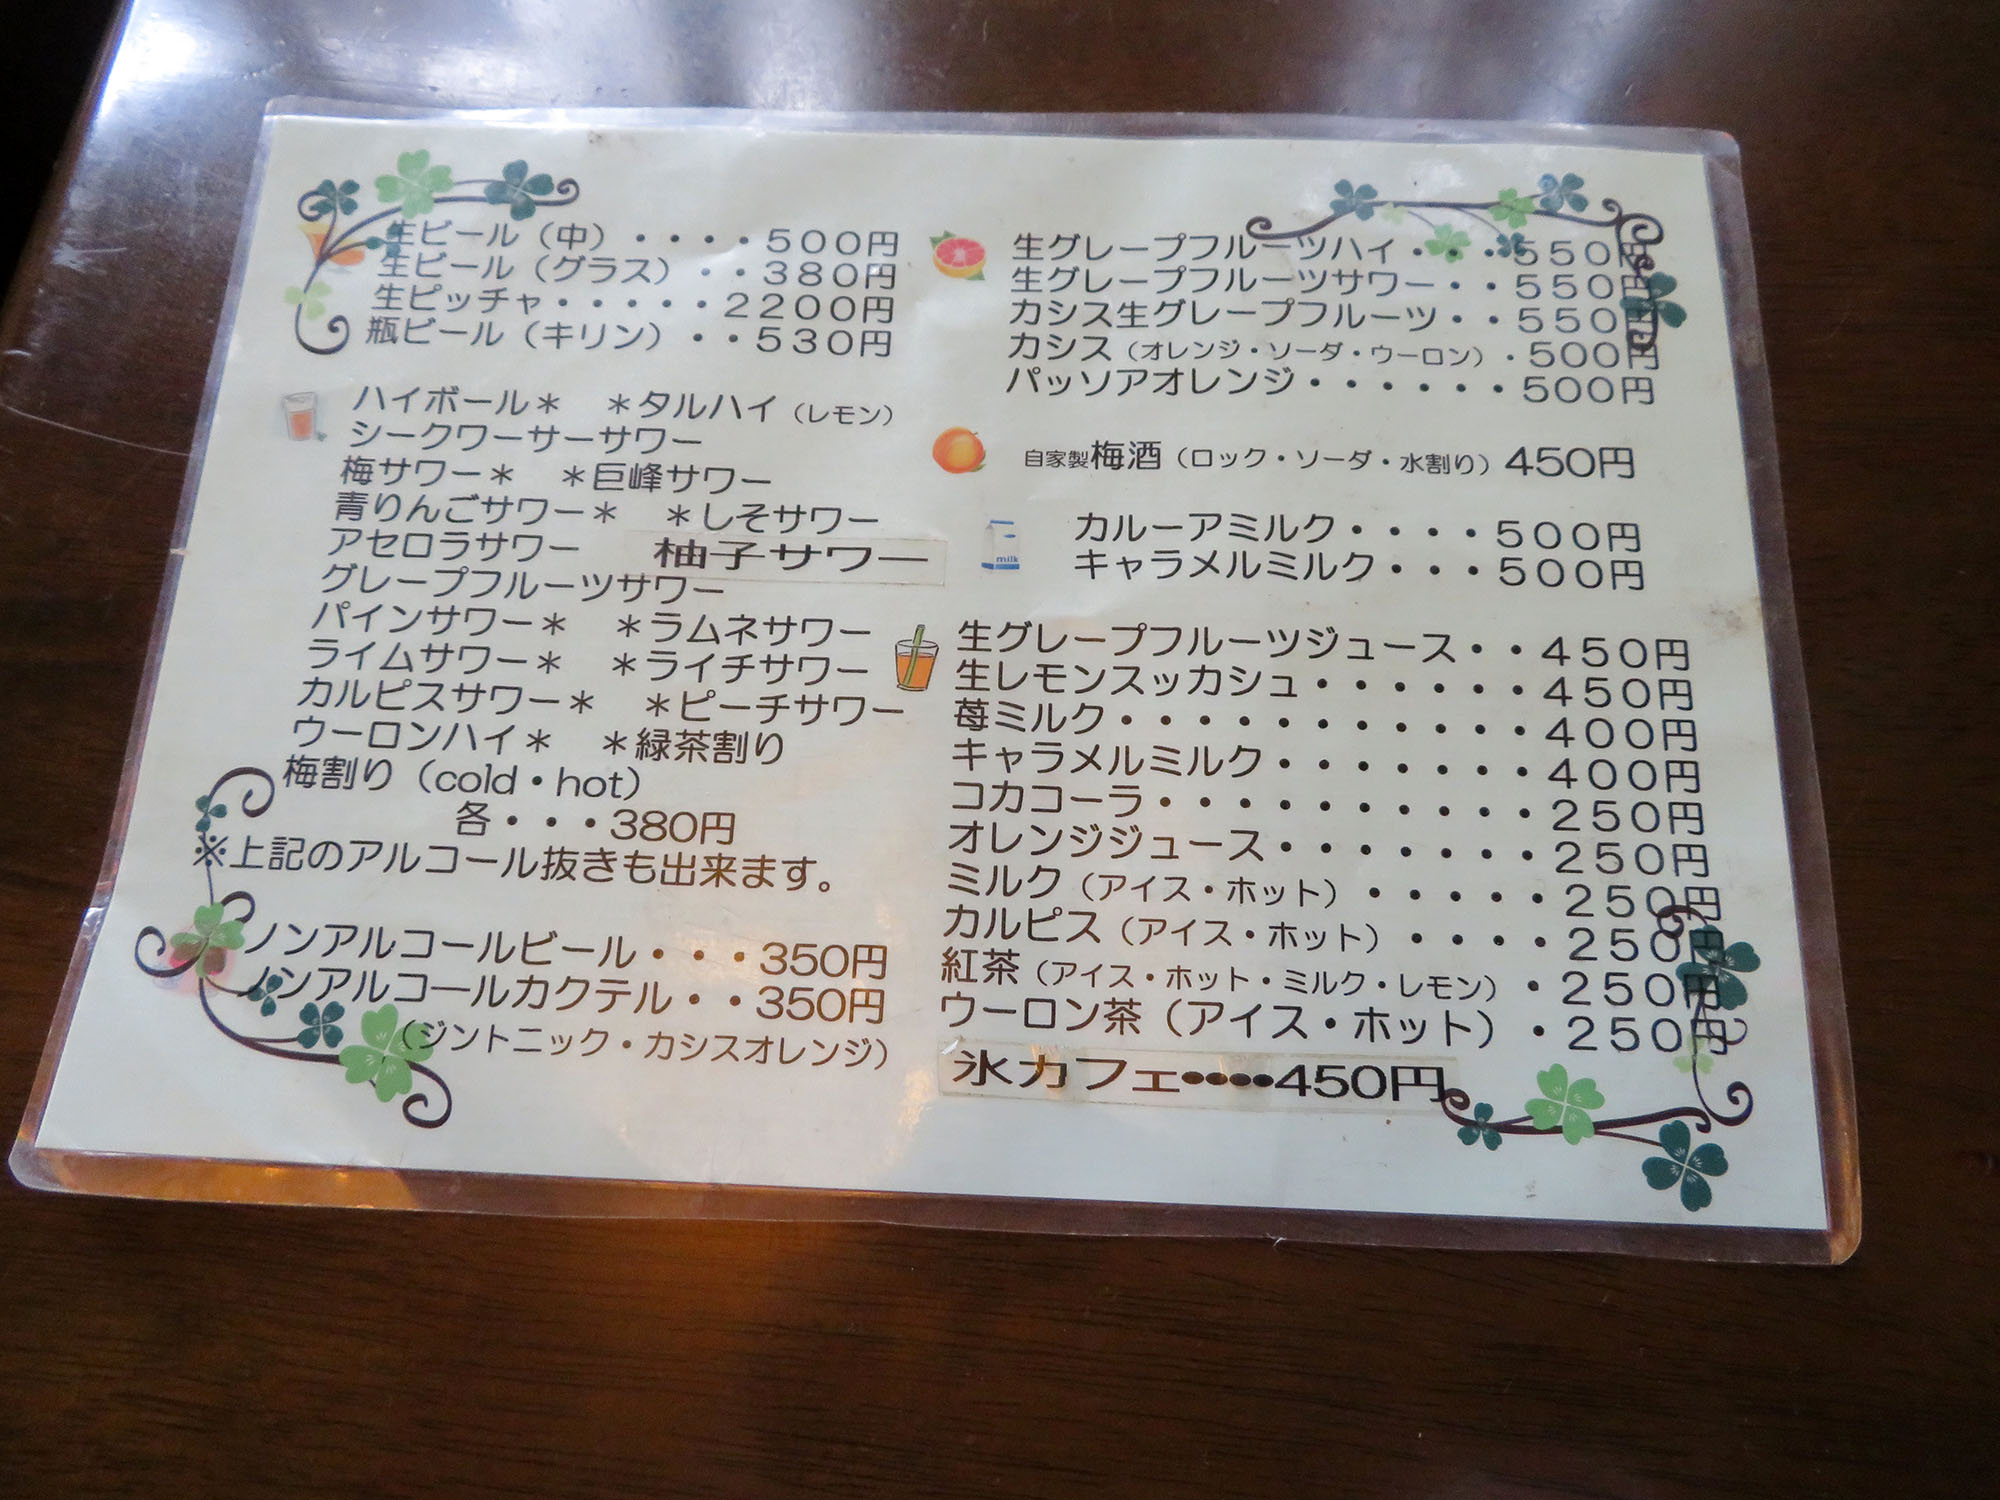 生ビール（中）・・・・５００円
生ビール（グラス）・・３８０円
生ピッチャ・・・・・２２００円
瓶ビール（キリン）・・５３０円
ハイボール＊　＊タルハイ（レモン）
シークワーサーサワー
梅サワー＊　＊巨峰サワー
青りんごサワー＊　＊しそサワー
アセロラサワー　柚子サワー
グレープフルーツサワー
パインサワー＊　＊ラムネサワー
ライムサワー＊　＊ライチサワー
カルピスサワー＊　＊ピーチサワー
ウーロンハイ＊　＊緑茶割り
梅割り（cold・hot）
各・・・380円
※上記のアルコール抜きも出来ます。
ノンアルコールビール・・・350円
ノンアルコールカクテル・・350円
（ジントニック・カシスオレンジ）
生グレープフルーツハイ・・・５５０円
生グレープフルーツサワー・・５５０円
カシス生グレープフルーツ・・５５０円
カシス（オレンジ・ソーダ・ウーロン）・５００円
パッソアオレンジ・・・・・・５００円
自家製梅酒（ロック・ソーダ・水割り）450円
milk
カルーアミルク・・・・５００円
キャラメルミルク・・・５００円
生グレープフルーツジュース・・４５０円
生レモンスッカシュ・・・・・・４５０円
苺ミルク・・・・・・・・・・・４００円
キャラメルミルク・・・・・・・４００円
コカコーラ・・・・・・・・・・２５０円
オレンジジュース・・・・・・・２５０円
ミルク（アイス・ホット）・・・・・２５０円
カルピス（アイス・ホット）・・・・２５０円
紅茶（アイス・ホット・ミルク・レモン）・２５０円
ウーロン茶（アイス・ホット）・２５０円
氷カフェ••••450円